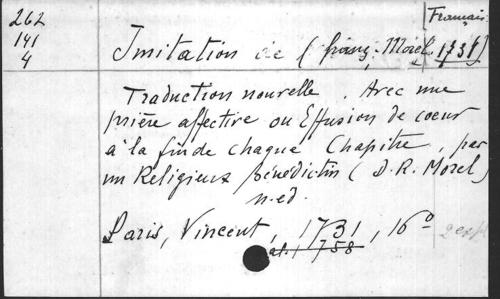 262
141
4
[Français
Imitation de (franç. Morel. 1731)
Traduction nouvelle. Avec une
prière affective ou Effusion de coeur
à la fin de chaque Chapitre, par
un Religieux bénédictin (D. R. Morel)
n. ed.
Paris, Vincent, 1731, 16°
al. 1758